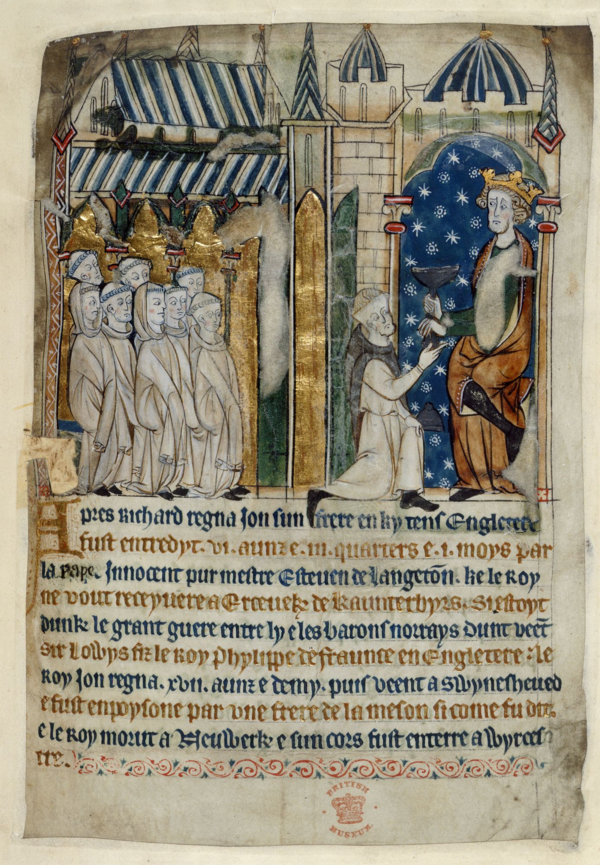 Apres Richard regna Jon sun frere en ky tens Engletere
fust entredyt. vi. aunz e. iii. quarters e. i. moys par
la pape. Innocent pur mestre Esteuen de Langetōn. ke le Roy
ne vout receyuere a Erceuek de Kaunterbyrs. Si estoyt
dunk le grant guere entre ly e les barons norrays dunt veēt
sir Lowys fiz le Roy Phylippe de fraunce en Engletere. Le
Roy Jon regna. xvii. aunz e demy. puis veent a Swynesheued
e fust enpoysone par vne frere de la meson si come fu dit.
e le Roy morut a Neuwerk e sun cors fust enterre a Wyrces
tre.
BRITISH
MUSEUM